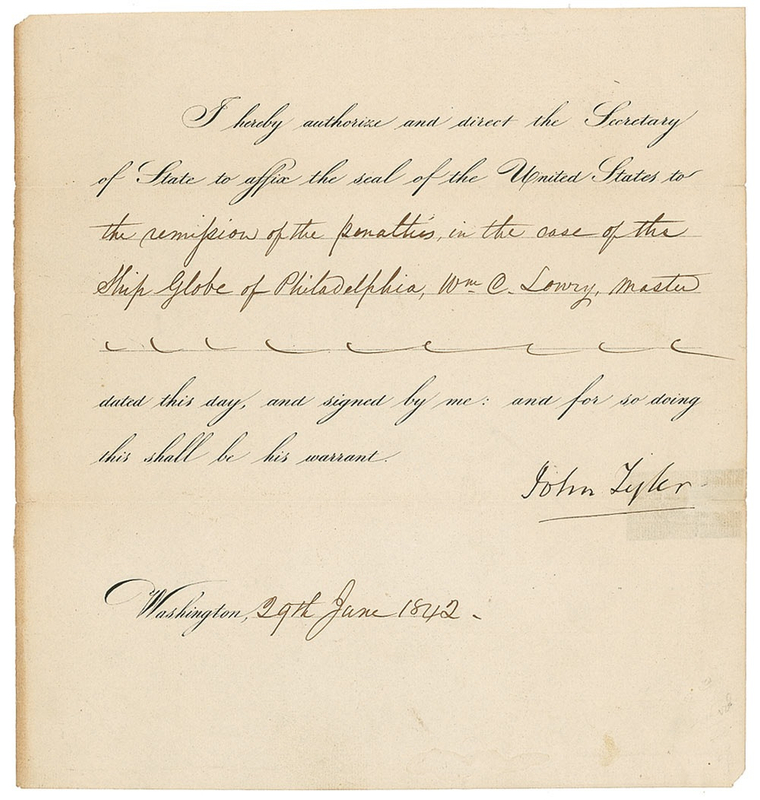 I hereby authorize and direct the Secretary
of State to affix the seal of the United States to
the remission of the penalties, in the case of the
Ship Globe of Philadelphia, Wm C. Lowry, Master
dated this day, and signed by me: and for so doing
this shall be his warrant.
John Tyler
Washington, 29th June 1842.